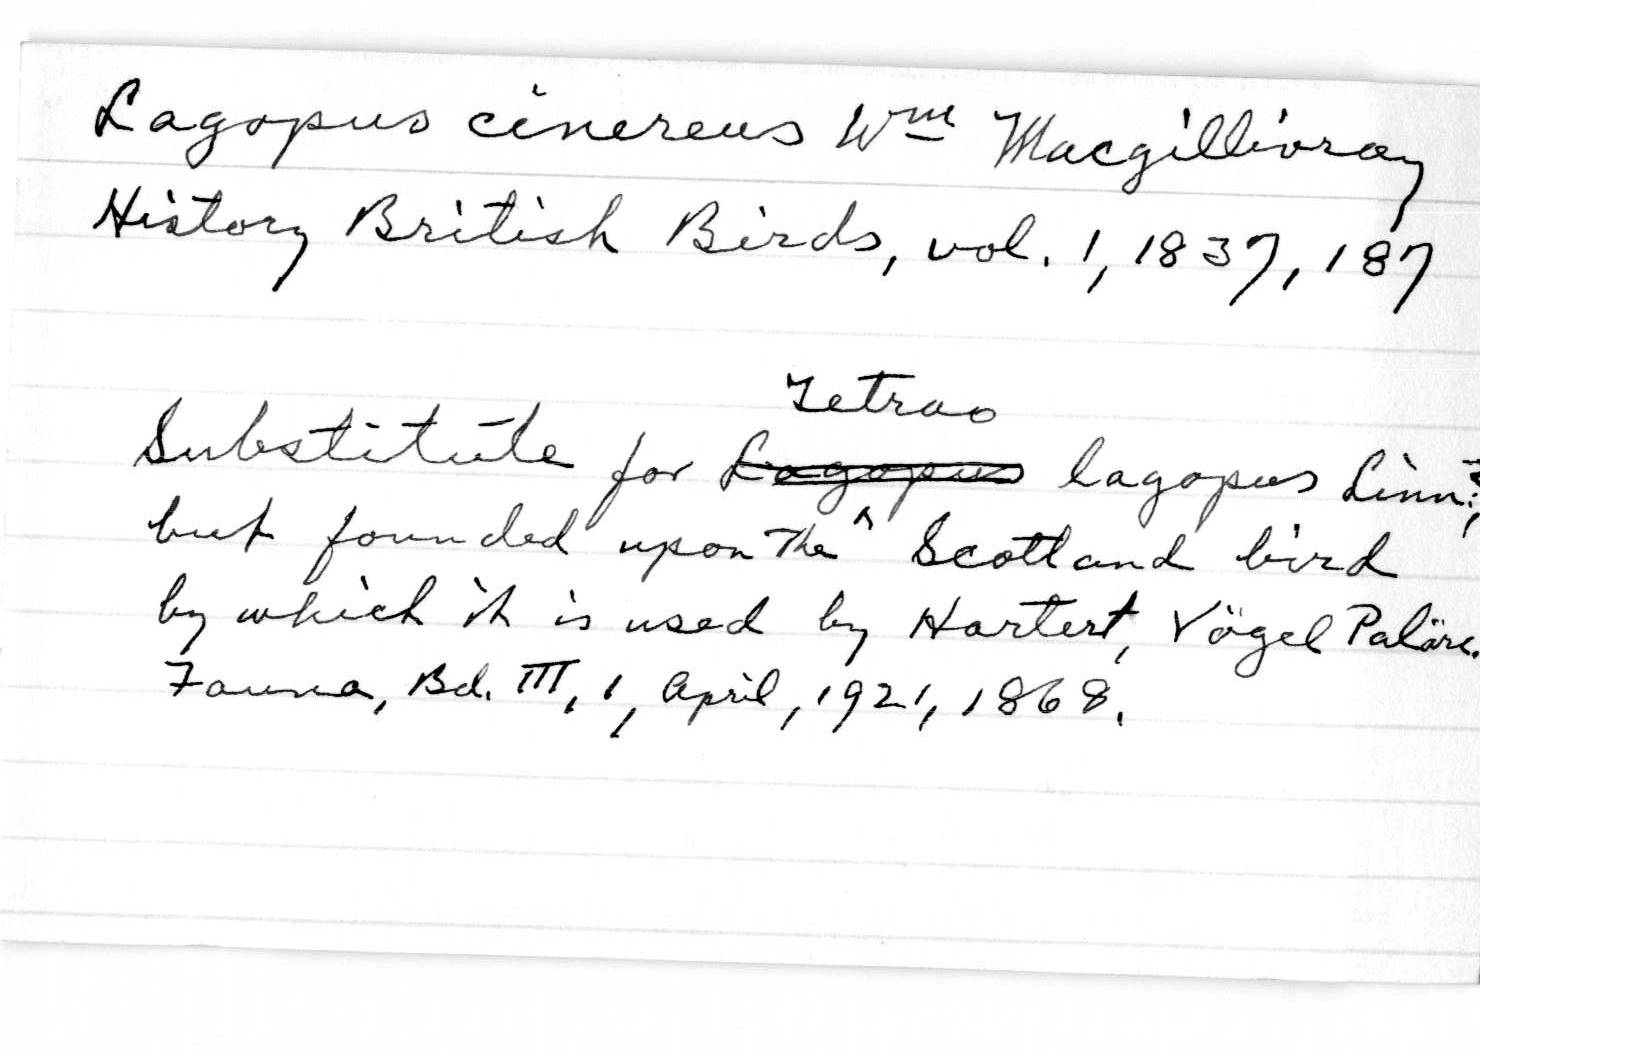 Lagopus cinereus Wm Macgillivray
History British Birds, vol. 1, 1837, 187
Tetrao
Substitute for Lagopus lagopus Linn.,
but founded upon The Scotland bird
by which it is used by Hartert, Vögel Paläre.
Fauna, Bd. III, 1, April, 1921, 1868.